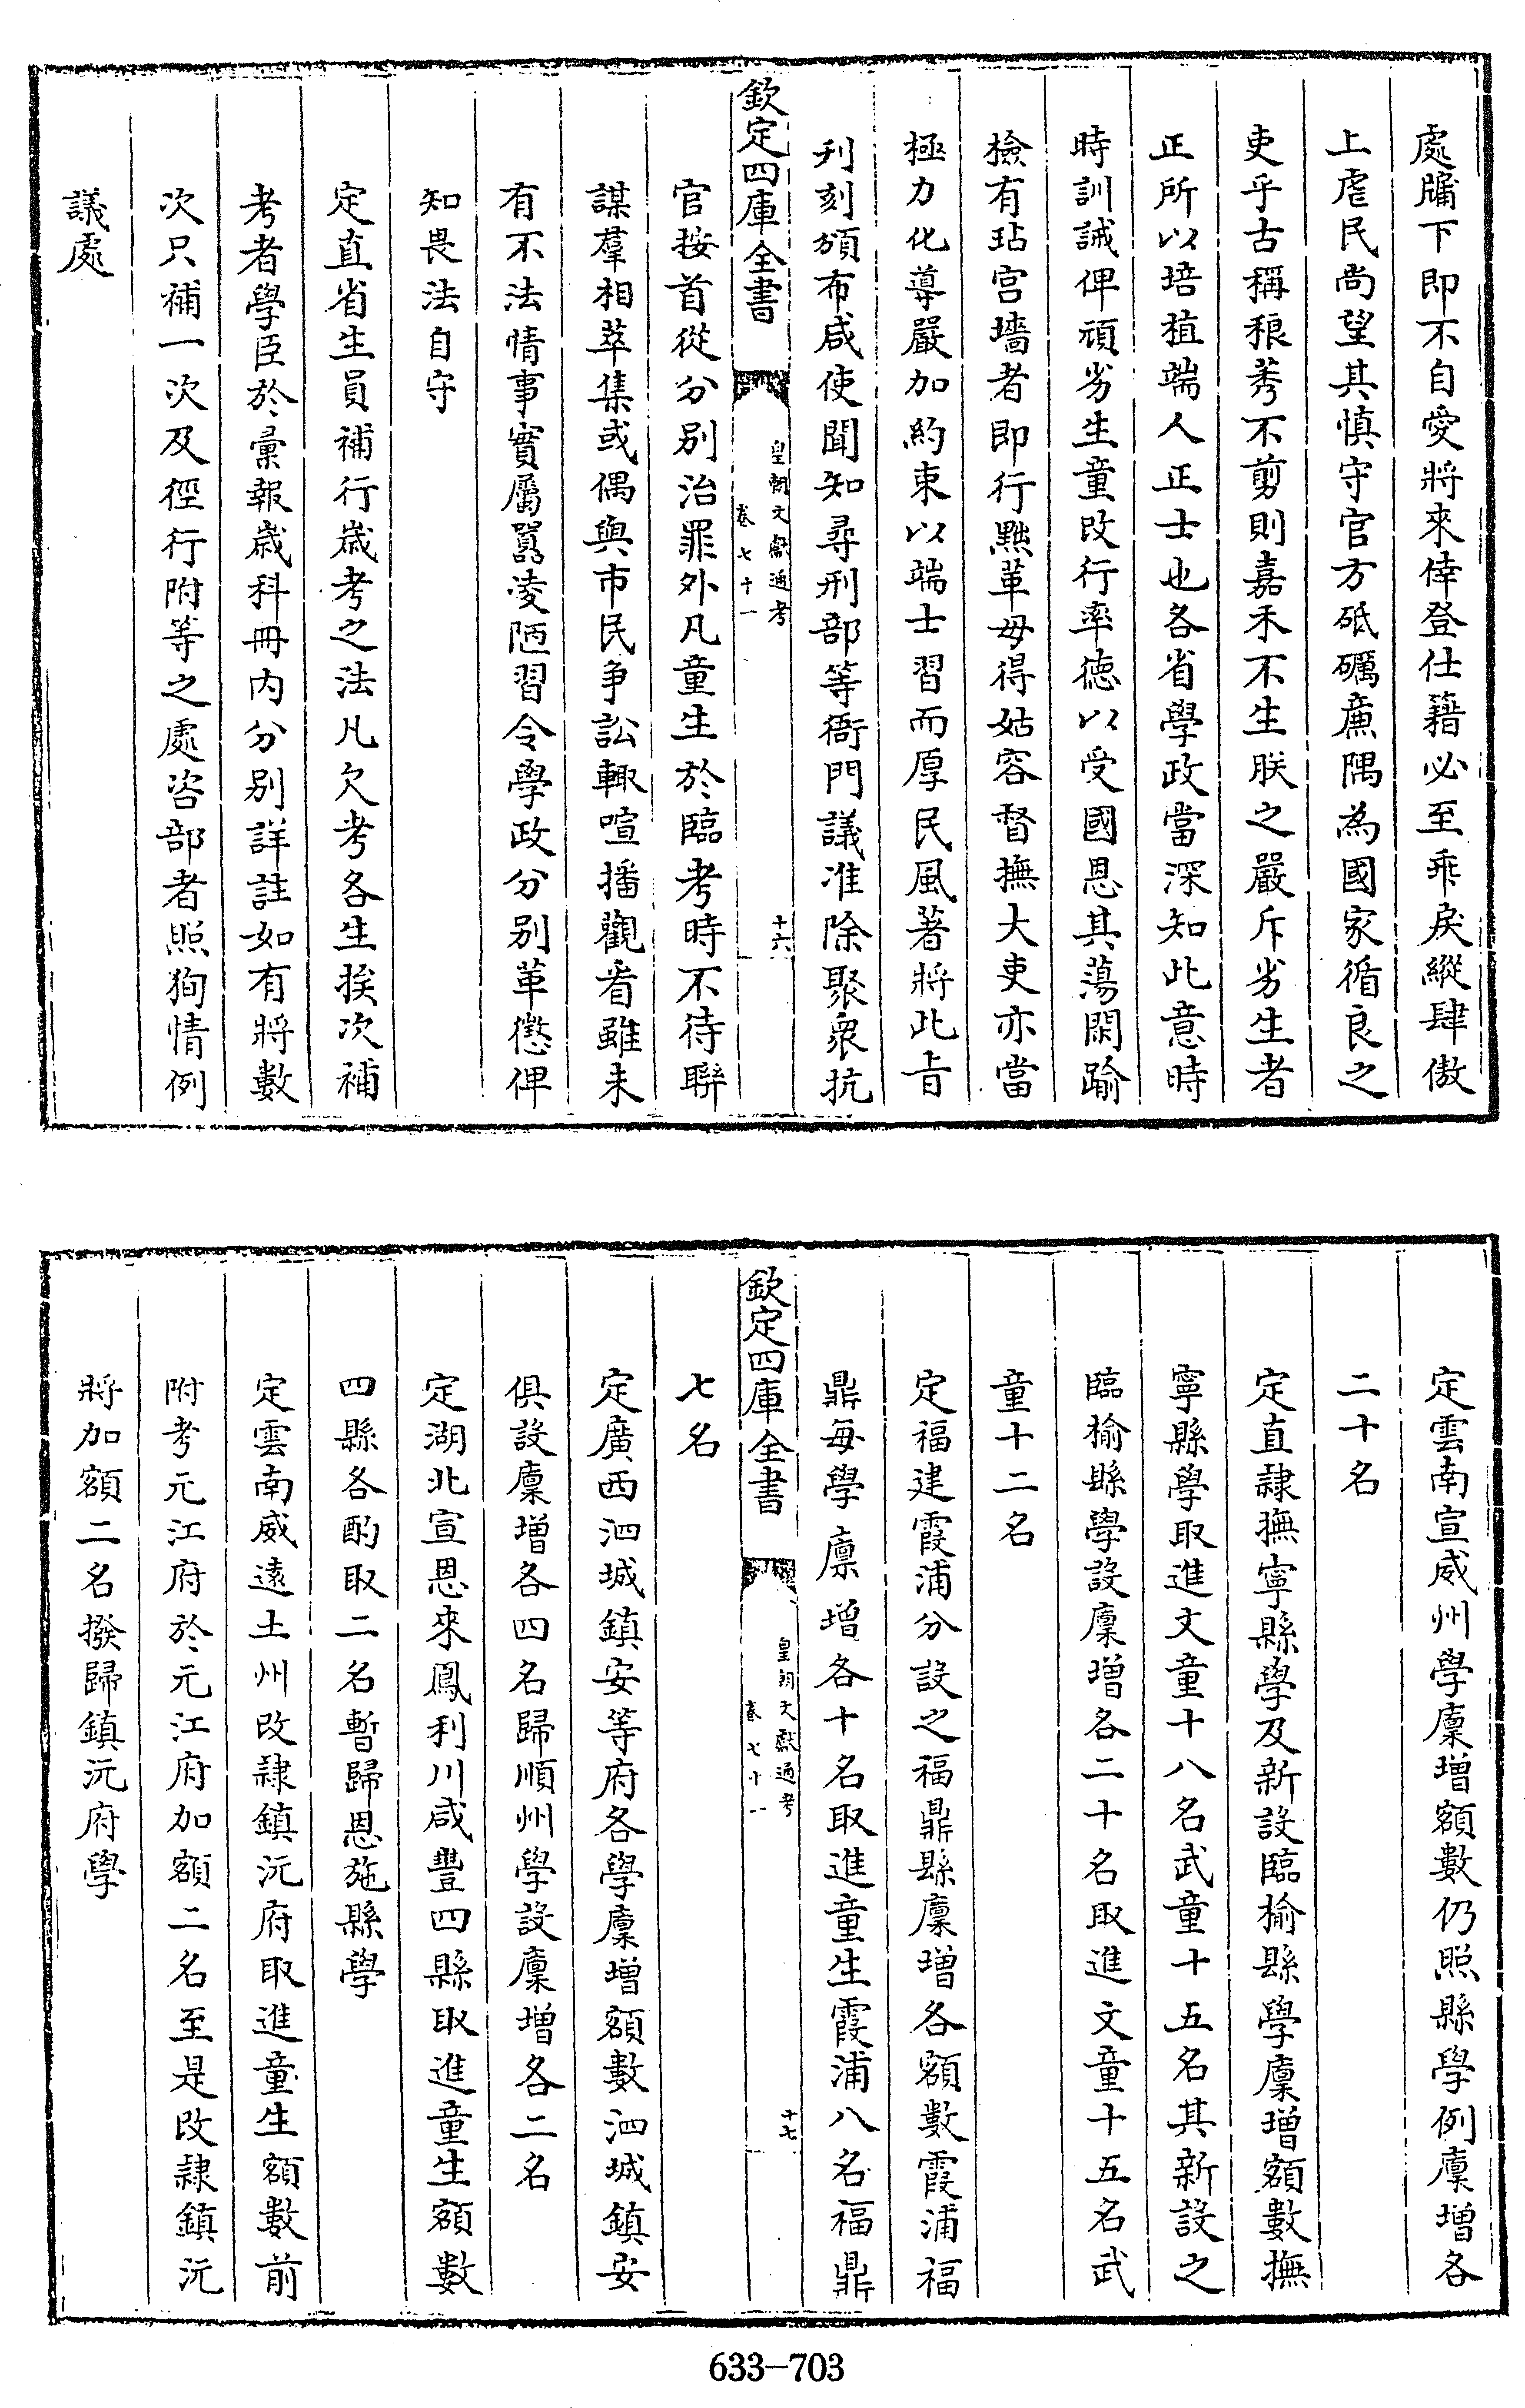 處牖下即不自愛將來倖登仕籍必至乖戾縱肆傲
上虐民尚望其慎守官方砥礪廉隅為國家循良之
吏乎古稱稂莠不剪則嘉禾不生朕之嚴斥劣生者
正所以培植端人正士也各省學政當深知此意時
時訓誡俾頑劣生童改行率徳以受國恩其蕩閑踰
檢有玷宫墻者即行黜革毋得姑容督撫大吏亦當
極力化導嚴加約束以端士習而厚民風著將此旨
刋刻頒布咸使聞知尋刑部等衙門議准除聚衆抗
欽定四庫全書
皇朝文獻通考
卷七十一
十六
官按首從分别治罪外凡童生於臨考時不待聯
謀羣相萃集或偶與市民爭訟輒喧播觀看雖未
有不法情事實屬囂凌陋習令學政分别革懲俾
知畏法自守
定直省生員補行歳考之法凡欠考各生挨次補
考者學臣於彚報歳科冊内分别詳註如有將數
次只補一次及徑行附等之處咨部者照狥情例
議處
定雲南宣威州學廩增額數仍照縣學例廩增各
二十名
定直隷撫寧縣學及新設臨榆縣學廩增額數撫
寧縣學取進文童十八名武童十五名其新設之
臨榆縣學設廩增各二十名取進文童十五名武
童十二名
定福建霞浦分設之福鼎縣廩增各額數霞浦福
鼎每學廩增各十名取進童生霞浦八名福鼎
欽定四庫全書
皇朝文獻通考
卷七十一
十七
七名
定廣西泗城鎮安等府各學廩增額數泗城鎮安
俱設廩增各四名歸順州學設廩增各二名
定湖北宣恩來鳳利川咸豐四縣取進童生額數
四縣各酌取二名暫歸恩施縣學
定雲南威遠土州改隷鎮沅府取進童生額數前
附考元江府於元江府加額二名至是改隷鎮沅
將加額二名撥歸鎮沅府學
633-703